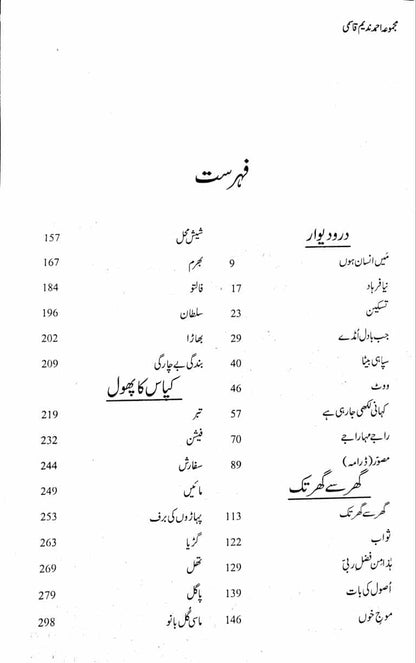 مجموعہ احمد ندیم قاسمی
فہرست
در و دیوار
مَیں انسان ہوں 9
نیا فرہاد 17
تسکین 23
جب بادل اُمڈے 29
سپاہی بیٹا 40
ووٹ 46
کہانی لکھی جا رہی ہے 57
راجے مہاراجے 70
مصوّر (ڈرامہ) 89
گھر سے گھر تک
گھر سے گھر تک 113
ثواب 122
ہٰذا مِن فضل ربّی 129
اُصول کی بات 139
موجِ خوں 146
شیش محل 157
بھرم 167
فالتو 184
سلطان 196
بھاڑا 202
بندگی بے چارگی 209
کپاس کا پھول
تبر 219
فیشن 232
سفارش 244
مائیں 249
پہاڑوں کی برف 253
گڑیا 263
تھل 269
پاگل 279
ماسی گُل بانو 298